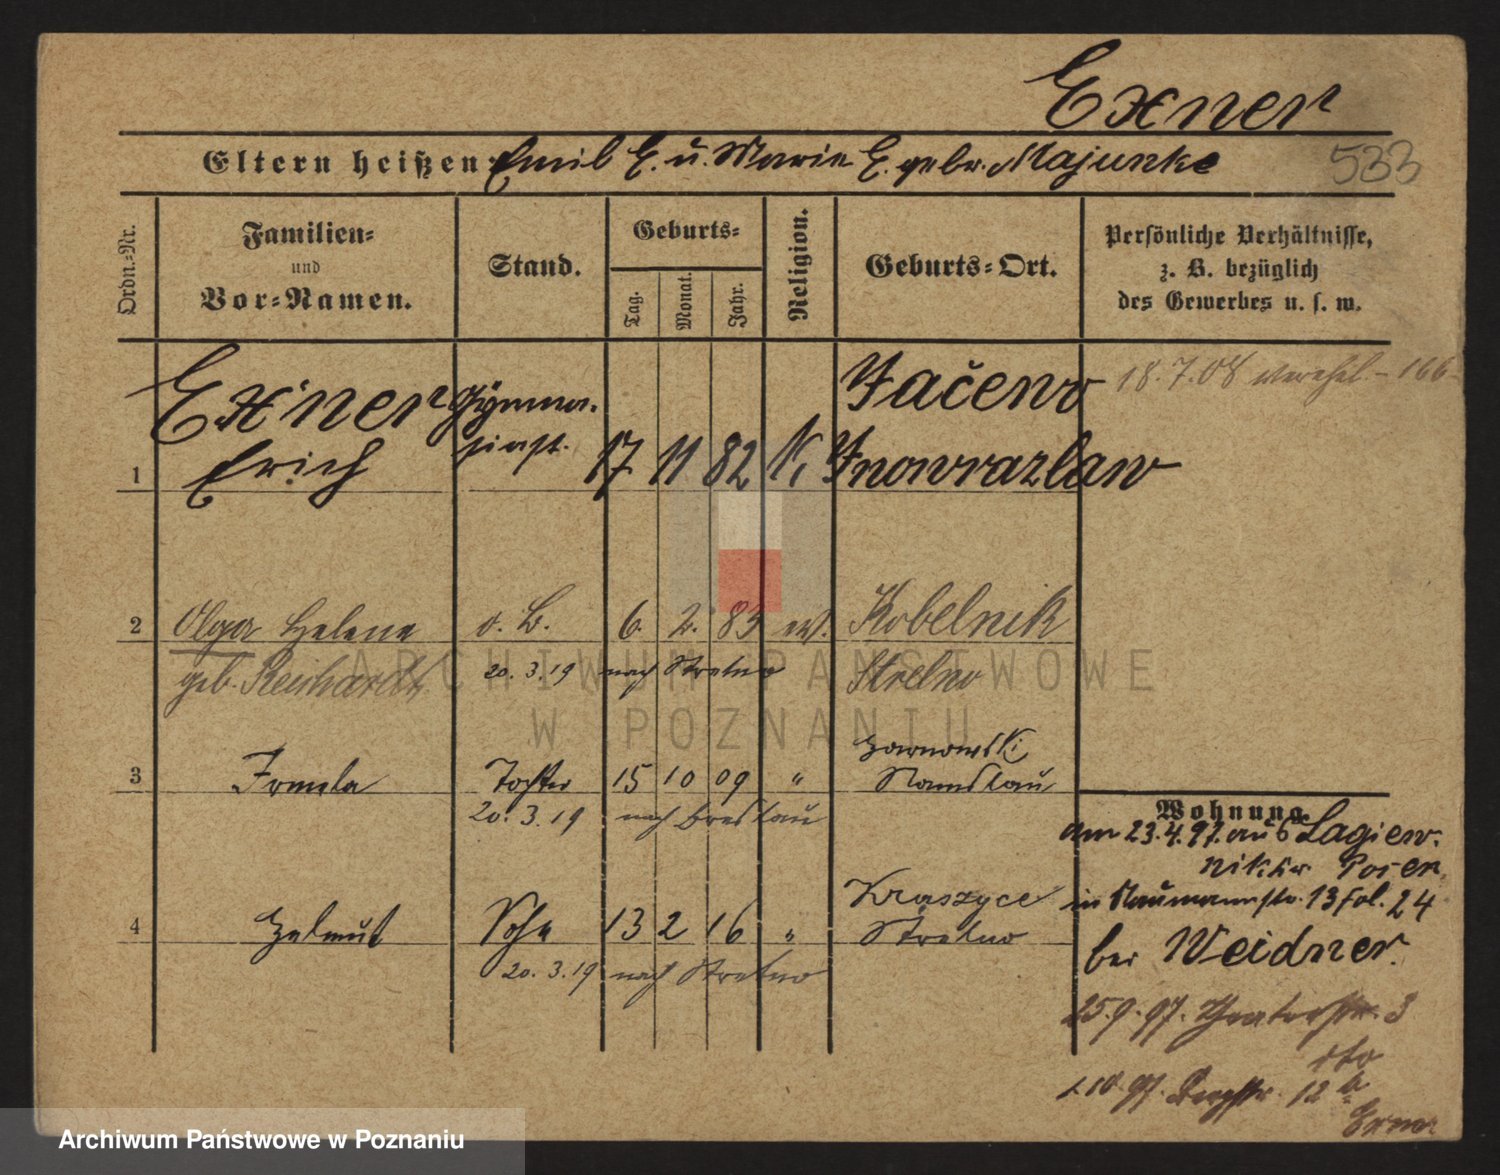 Exner
Eltern heißen: Emil E. u. Marie E. gebr. Majunke
533
Ordn.-Nr.
Familien-
und
Vor-Namen.
Stand.
Geburts-
Tag.
Monat.
Jahr.
Religion.
Geburts-Ort.
Persönliche Verhältnisse,
z. B. bezüglich
des Gewerbes u. s. w.
Exner Gymna- Jačewo 18.7.08 - 166
1 Erich siast. 17 11 82 K. Inowrazlaw
2 Olga Helene o. B. 6. 2. 83 ev. Kobelnik
geb. Reichardt 20.3.19 nach Strelno Strelno
3 Irmela Tochter 15 10 09 " Namslau
20.3.19 nach Breslau
Kraszyce
4 Helmut Sohn 13 2 16 " Strelno
20.3.19 nach Strelno
Wohnung.
am 23.4.97. aus Lagiew-
nik, Kr. Posen
in Naumannstr. 13 fol. 24
bei Weidner.
25.9.97. Theaterstr. 3
dto
1.10.97. Bergstr. 12 b
ARCHIWUM PAŃSTWOWE
W POZNANIU
Archiwum Państwowe w Poznaniu